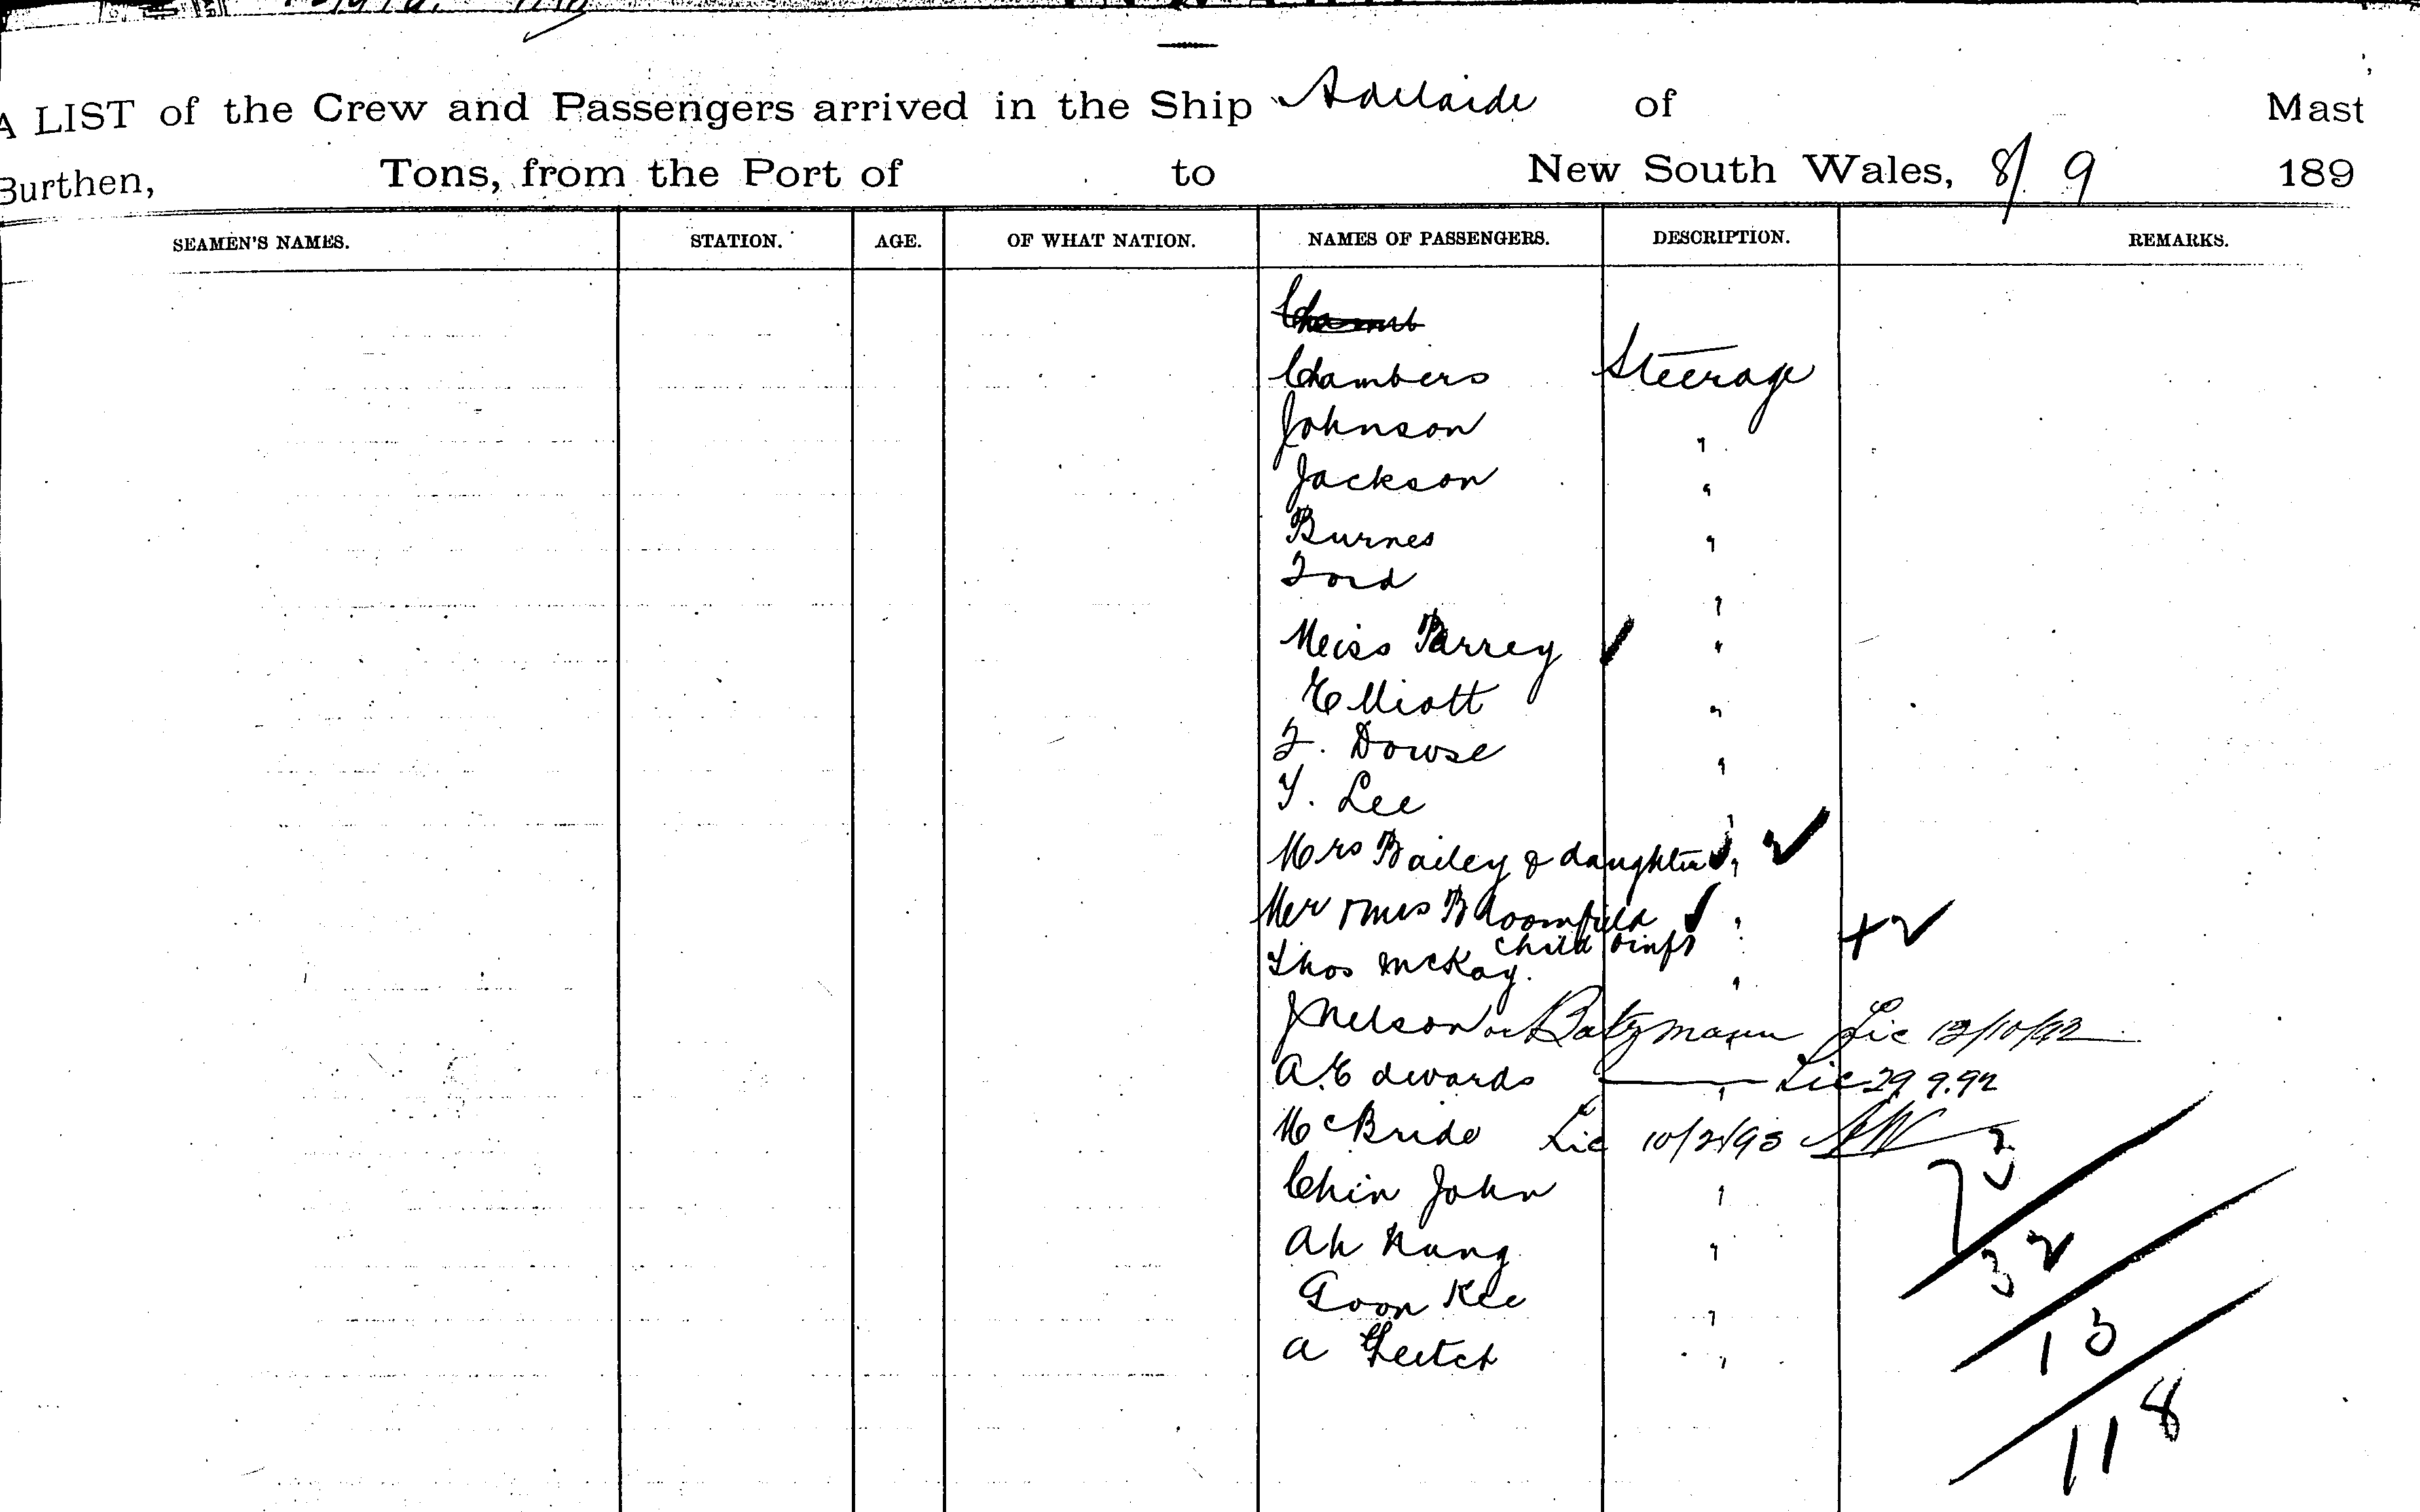 A LIST of the Crew and Passengers arrived in the Ship Adelaide of Mast
Burthen, Tons, from the Port of to New South Wales, 8/9 189
SEAMEN'S NAMES. STATION. AGE. OF WHAT NATION. NAMES OF PASSENGERS. DESCRIPTION. REMARKS.
Chambers Steerage
Johnson "
Jackson "
Burnes "
Ford "
Miss Parrey ✓ "
Elliott "
F. Dowse "
T. Lee "
Mrs Bailey & daughter ✓ " ✓
Mr & Mrs Bloomfield ✓ " + ✓
child & inft
Thos McKay. "
J Nelson or Batzmann Lic 12/10/92
A. Edwards " Lic 29.9.92
McBride Lic 10/2/93
Chin John "
Ah Nang "
Goon Kee "
A "
73
32
13
118